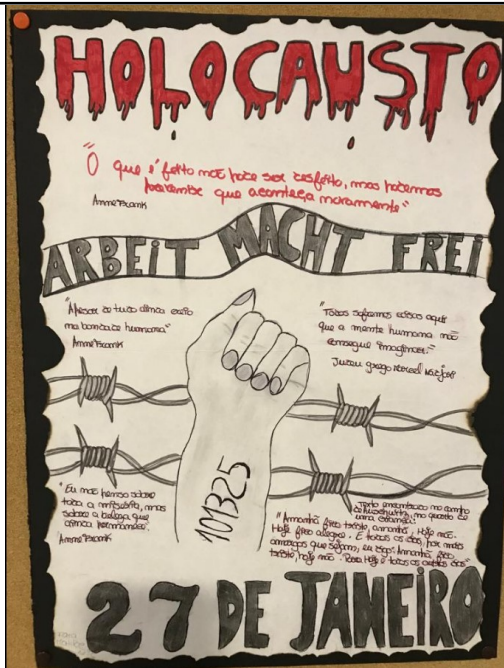 HOLOCAUSTO
"O que é feito não pode ser desfeito, mas podemos
prevenir que aconteça novamente"
Anne Frank
ARBEIT MACHT FREI
"Apesar de tudo ainda creio
na bondade humana"
Anne Frank
"Todos sofremos coisas aqui
que a mente humana não
consegue imaginar."
Judeu grego Marcel
101325
"Eu não penso sobre
toda a miséria, mas
sobre a beleza que
ainda permanece.
Anne Frank
Texto encontrado no campo
de Auschwitz, no quarto de
uma criança:
"Amanhã fico triste, amanhã. Hoje não.
Hoje fico alegre. E todos os dias, por mais
amargos que sejam, eu digo: Amanhã fico
triste, hoje não. Para Hoje e todos os outros dias"
27 DE JANEIRO